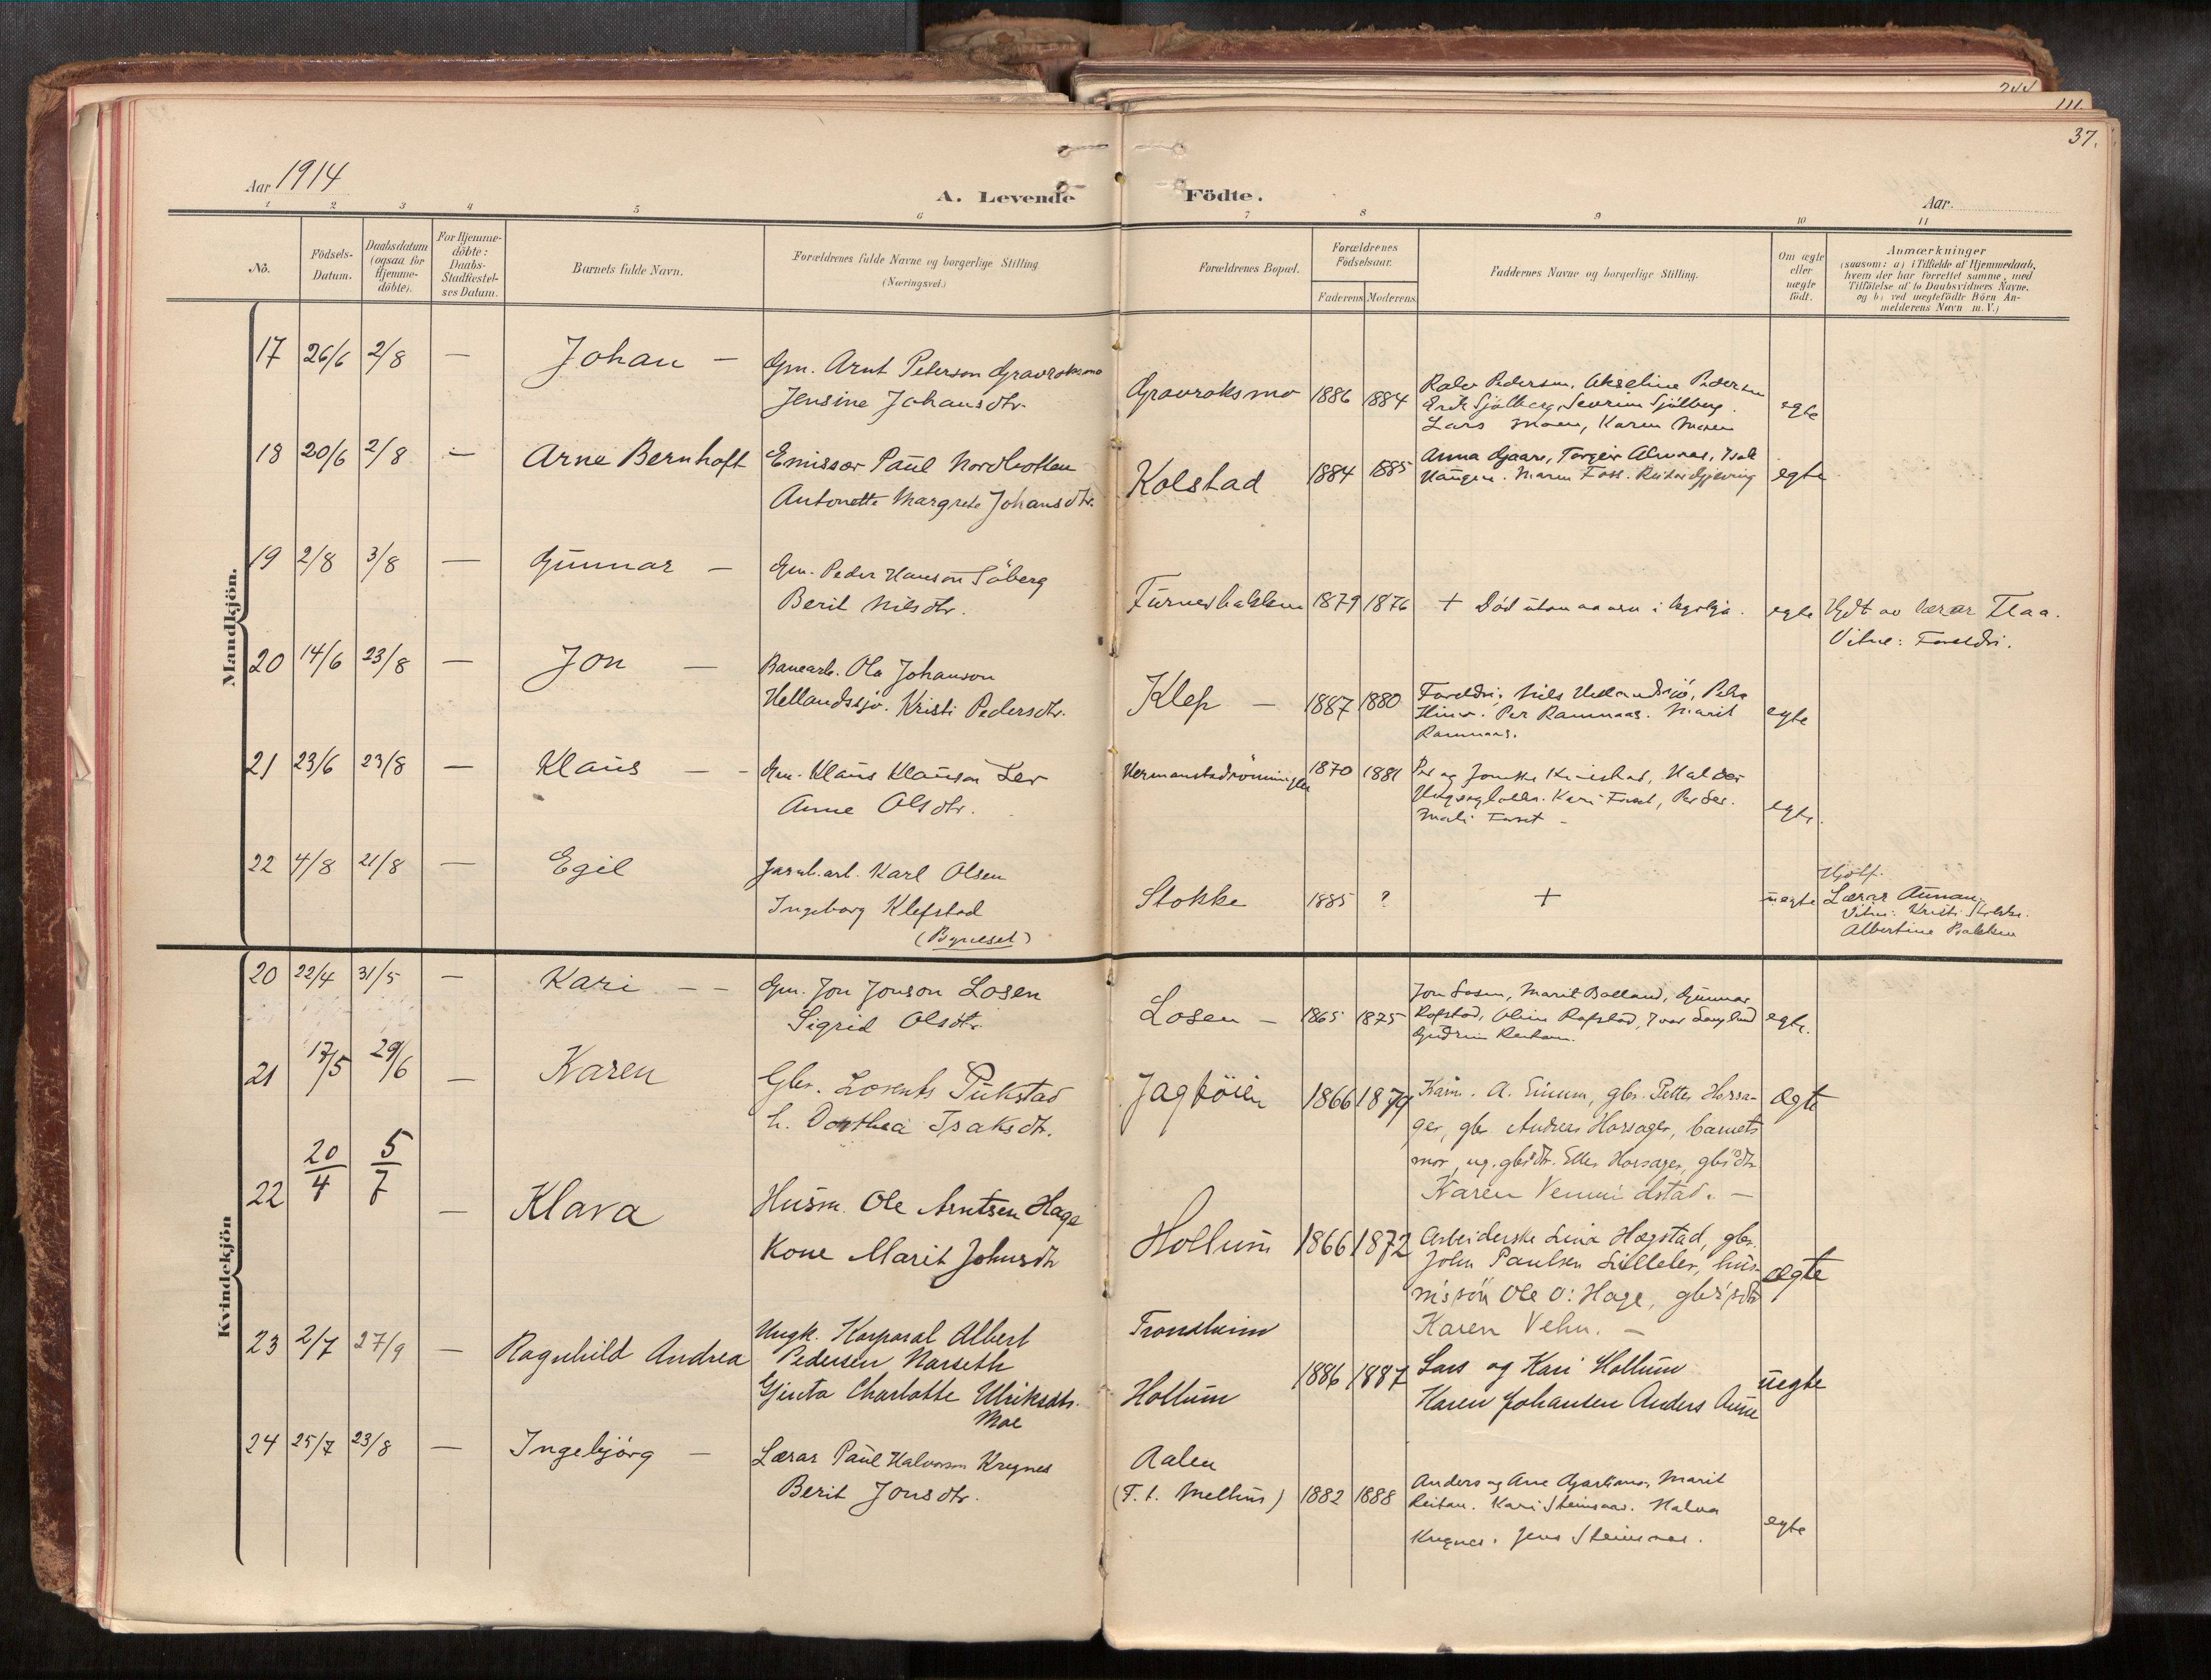 244
111.
37.
Aar 1914
A. Levende Födte.
Aar.
1 2 3 4 5 6 7 8 9 10 11
No.
Födsels-
Datum.
Daabsdatum
(ogsaa for
Hjemme-
döbte).
For Hjemme-
döbte:
Daabs-
Stadfæstel-
ses Datum.
Barnets fulde Navn.
Forældrenes fulde Navne og borgerlige Stilling
(Næringsvei.)
Forældrenes Bopæl.
Forældrenes
Födselsaar.
Faderens Moderens
Faddernes Navne og borgerlige Stilling.
Om ægte
eller
uægte
födt.
Anmærkninger
(saasom: a) i Tilfælde af Hjemmedaab,
hvem der har forrettet samme, med
Tilföielse af to Daabsvidners Navne,
og b) ved uægtefödte Börn An-
melderens Navn m.V.)
Mandkjön.
17 26/6 2/8 — Johan —
Gm. Arnt Peterson Gravroksmo
Jensine Johansdtr.
Gravroksmo 1886 1884
Pedersen, Akseline Pedersen
Erik Sjölberg, Sevrine Sjölberg.
Lars Moen, Karen Moen
egte
18 20/6 2/8 — Arne Bernhoft
Emissær Paul Nordbotten
Antonette Margrete Johansdtr.
Kolstad 1884 1885
Anna Gaare, Torgeir
Haugen. Maren Foss.
egte
19 2/8 3/8 — Gunnar —
Gm. Peder Hanson Söberg
Berit Nilsdtr.
Furunesbakken 1879 1876 + Död
egte Hjdt av lærar Flaa.
Vitne: Foreldri.
20 14/6 23/8 — Jon —
Banearb. Ola Johanson
Hellandssjö. Kristi Pedersdtr.
Klep — 1887 1880
Foreldri, Nils Hellandsjö, Petra
Per Ramnaas. Marit
Ramnaas.
egte
21 23/6 23/8 — Klaus — -
Gm. Klaus Klauson Ler
Anne Olsdtr.
1870 1881
Per og
Kari Forset, Per Ler.
Mali Forset -
egte.
22 4/8 21/8 — Egil
Jarnb.arb. Karl Olsen
Ingeborg Klefstad
(Byneset)
Stokke 1885 ? +
uegte
Lærar Aunan.
Vitne: Kristi Stokke.
Albertine Bakken
Kvindekjön
20 22/4 31/5 — Kari — —
Gm. Jon Jonson Losen
Sigrid Olsdtr.
Losen — 1865 1875
Jon Losen, Marit Bolland, Gunnar
Rofstad, Oline Rofstad, Ivar
egte.
21 17/5 29/6 — Karen
Gbr. Lorents Pukstad
h. Dorthea Isaksdtr.
Jagtöien 1866 1879
A. Simum, gbr. Petter Horsa-
ger, gbr. Andreas Horsager, barnets
mor, ug. gbrdtr. Ellen Horsager, gbrdtr.
Karen —
Ægte
22 20/4 5/7 — Klara
Husm. Ole Arntsen Hage
Kone Marit Johnsdtr
Hollum 1866 1872
Arbeiderske Lina Hægstad, gbr.
John Paulsen Lilleler, hus-
m'ssön Ole O: Hage, gbr'sdtr
Karen Vehn. —
ægte
23 2/7 27/9 — Ragnhild Andrea
Ungk. Korporal Albert
Pedersen Narseth
Gjenta Charlotte Ulriksdtr.
Moe
Trondheim
Hollum
1886 1887
Lars og Kari Hollum
Karen Johansen Anders Aune
uegte
24 25/7 23/8 — Ingebjörg —
Lærar Paul Halvorson Krygnes
Berit Jonsdtr.
Aalen
(F. t. Melhus) 1882 1888
Anders og Ane Marit
Reitan. Kari
Jens
egte